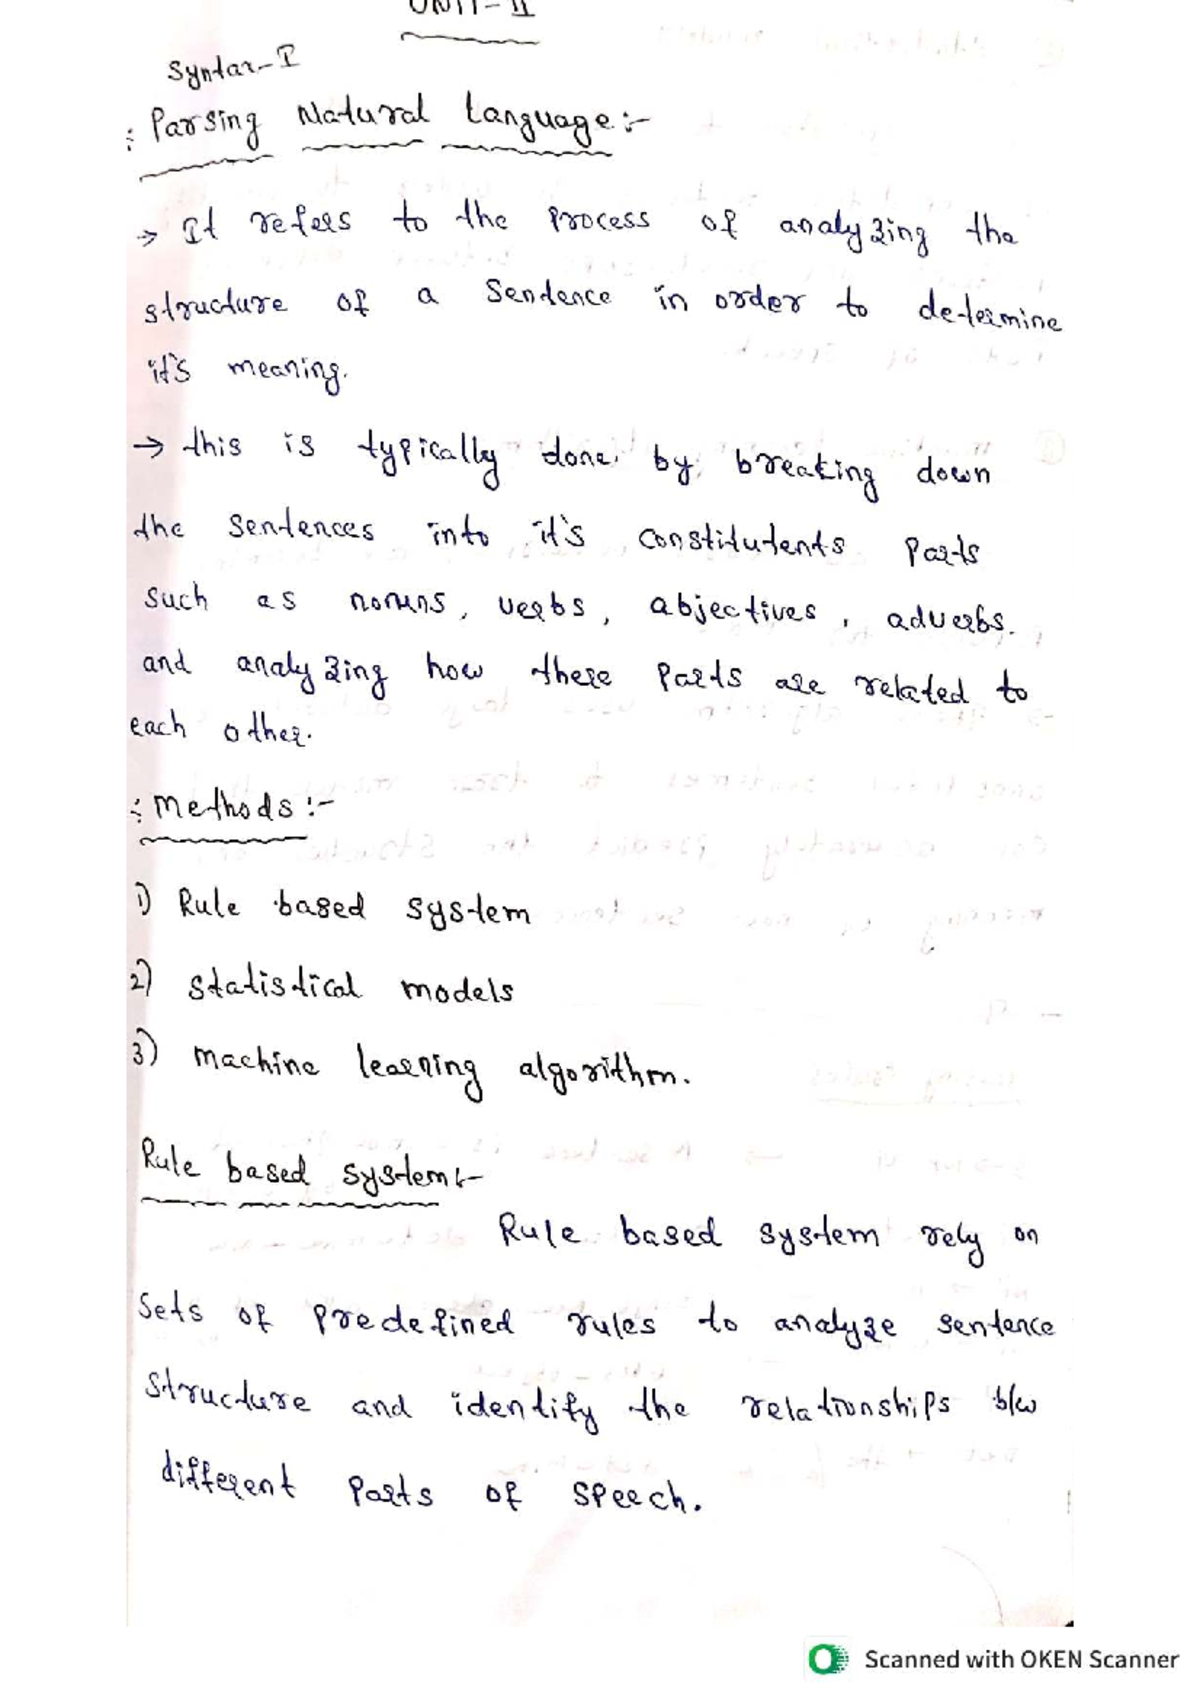 UNIT-II
Syntax-I
: Parsing Natural Language:-
→ It refers to the process of analyzing the
structure of a sentence in order to determine
it's meaning.
→ this is typically done by breaking down
the sentences into it's constitutents parts
such as nouns, verbs, abjectives, adverbs.
and analyzing how these parts are related to
each other.
: Methods:-
1) Rule based system
2) statistical models
3) machine learning algorithm.
Rule based system:-
Rule based system rely on
sets of predefined rules to analyze sentence
structure and identify the relationships b/w
different parts of speech.
Scanned with OKEN Scanner